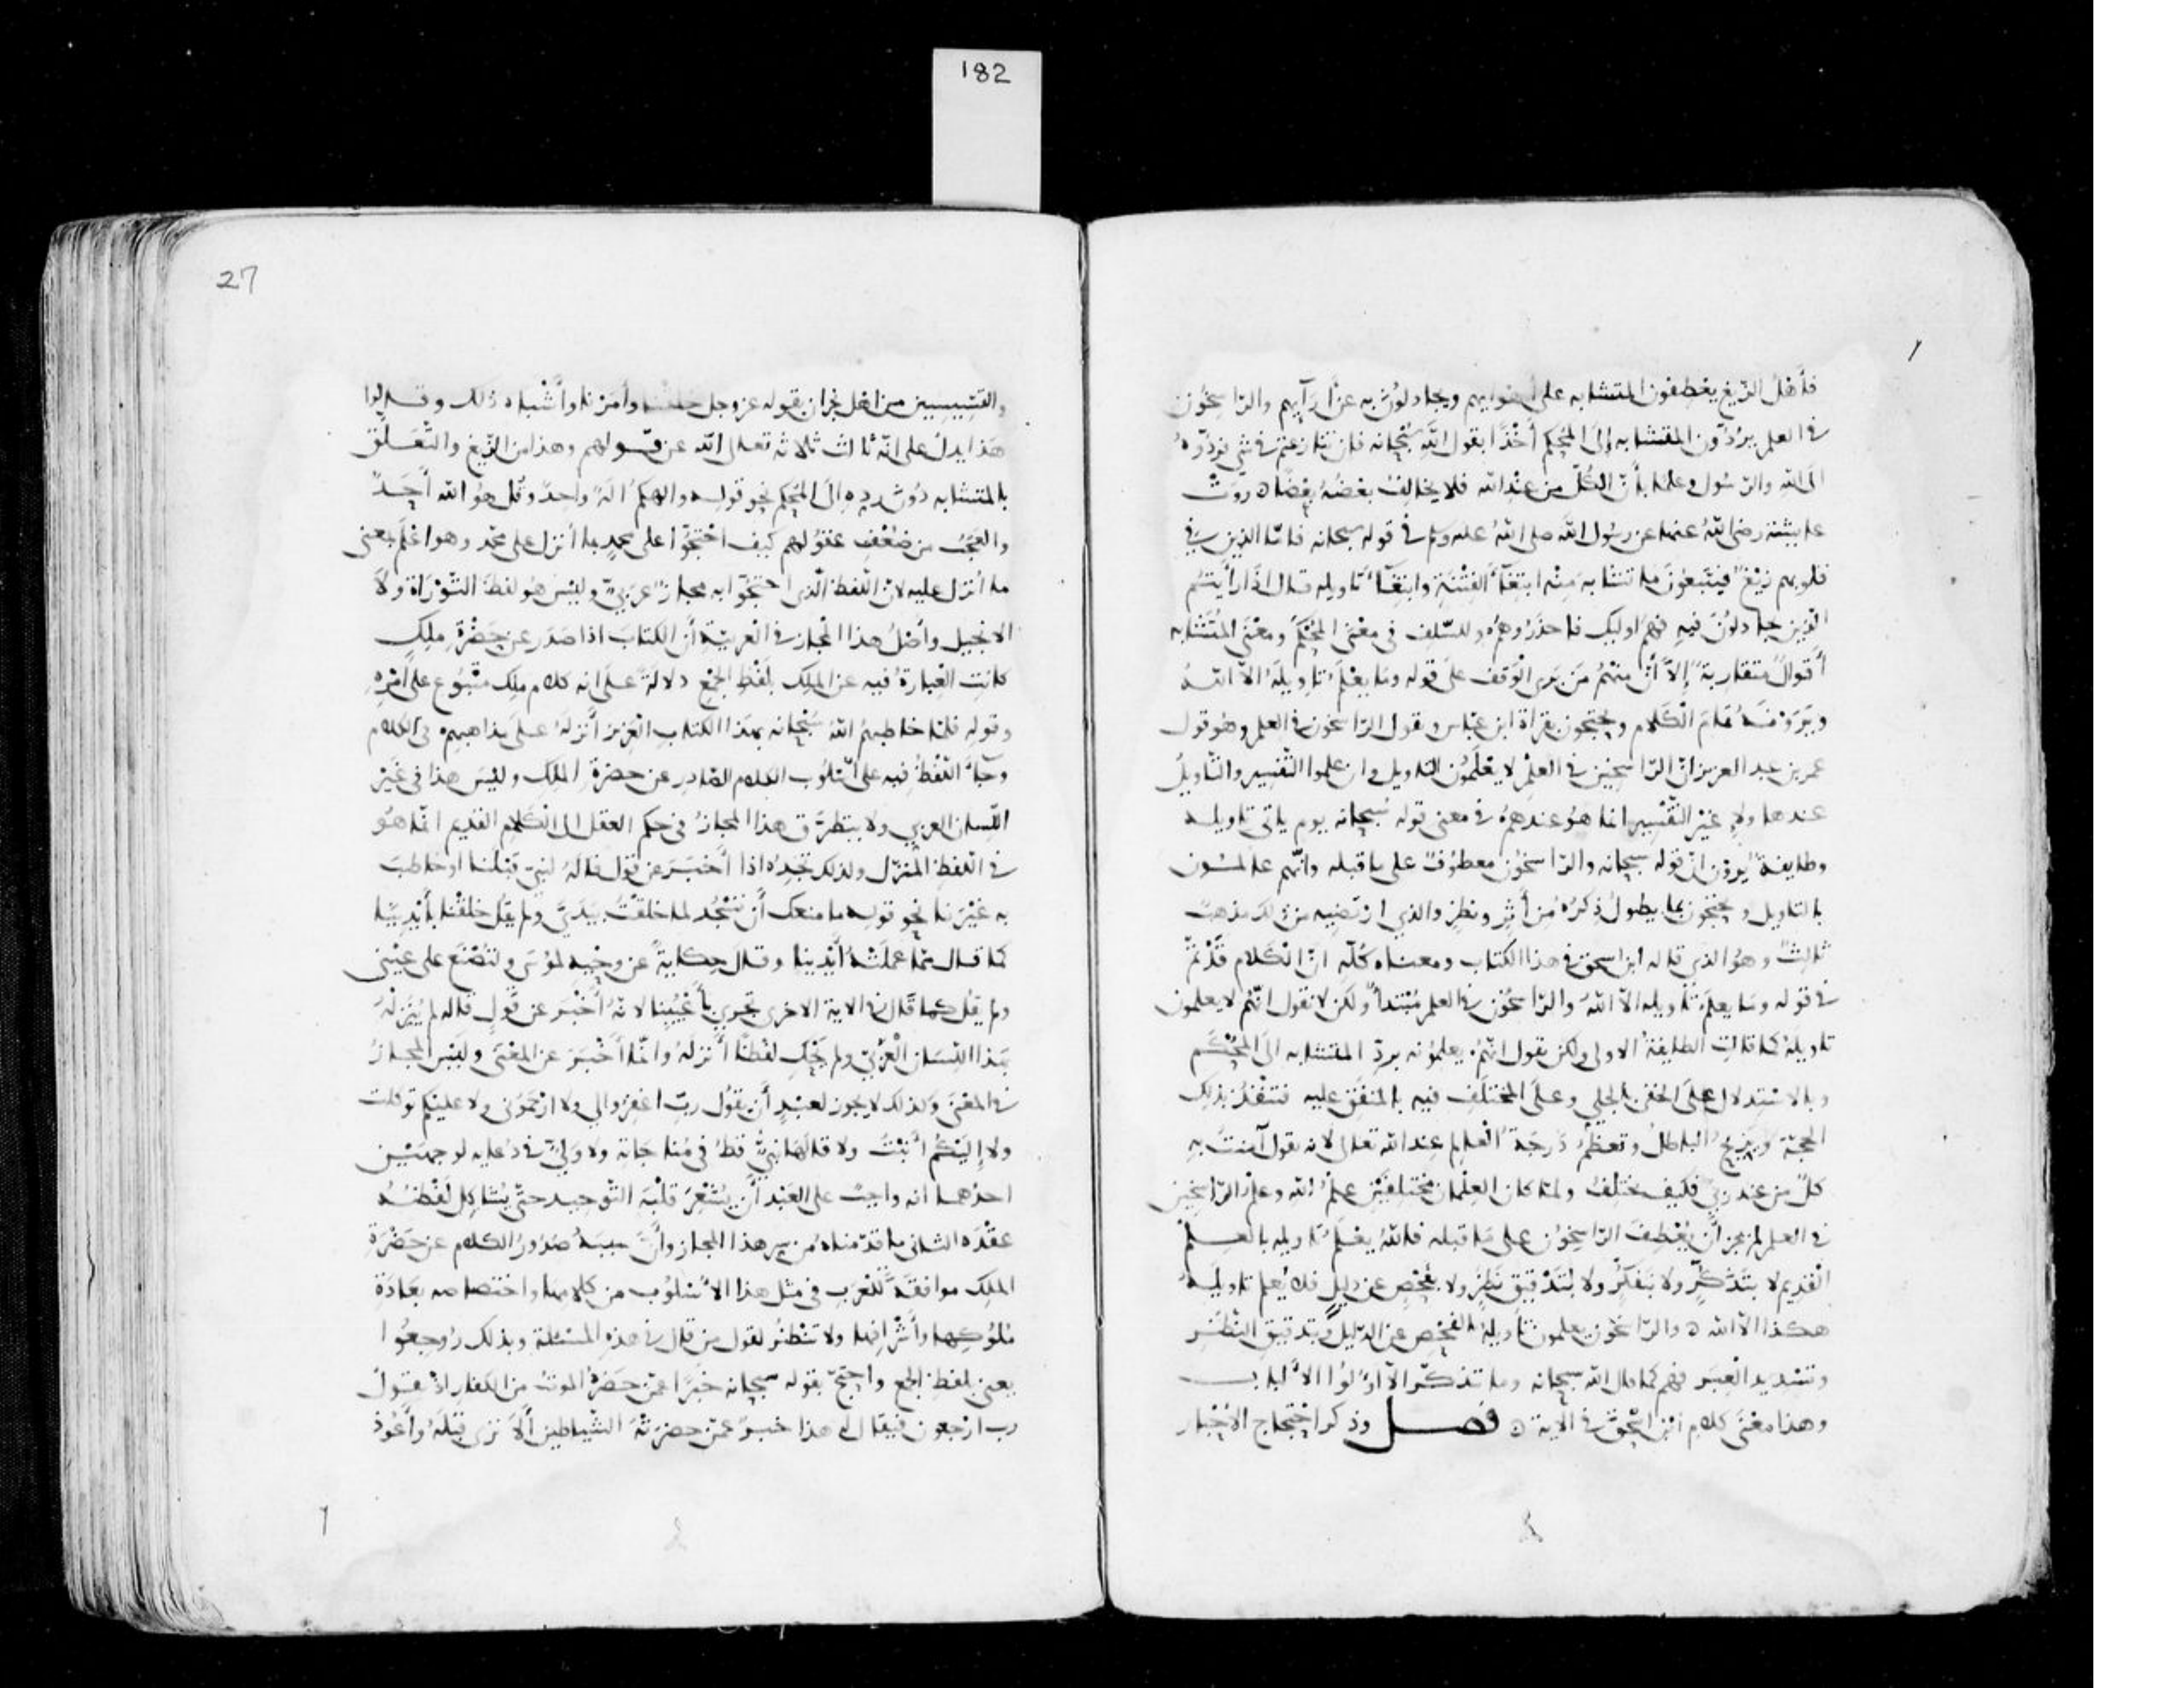 182
فأهل الزيغ يعطفون المتشابه على أهوايهم ويجادلون به عن آرايهم والراسخون
في العلم يردون المتشابه إلى المحكم أخذا بقول الله سبحانه فان تنازعتم في شي فردوه
الى الله والرسول وعلما بأن الكل من عند الله فلا يخالف بعضه بعضا ه روت
عايشة رضي الله عنها عن رسول الله صلى الله عليه وسلم في قوله سبحانه فاما الذين في
قلوبهم زيغ فيتبعون ما تشابه منه ابتغآء الفتنة وابتغآء تاويله قال اذا رأيتم
الذين يجادلون فيه فهم اوليك فاحذروهم وللسلف في معنى المحكم ومعنى المتشابه
أقوال متقاربة إلا أن منهم من يرى الوقف على قوله وما يعلم تاويله الا الله
ويرونه تمام الكلام ويحتجون بقراة ابن عباس ويقول الراسخون في العلم وهو قول
عمر بن عبد العزيز ان الراسخين في العلم لا يعلمون التاويل وان علموا التفسير والتاويل
عند هاولاء غير التفسير انما هو عندهم في معنى قوله سبحانه يوم ياتي تاويله
وطايفة يرون ان قوله سبحانه والراسخون معطوف على ما قبله وانهم عالمون
بالتاويل ويحتجون بما يطول ذكره من أثر ونظر والذي ارتضيه من ذلك مذهب
ثالث وهو الذي قاله ابن اسحق في هذا الكتاب ومعناه كله ان الكلام قد تم
في قوله وما يعلم تاويله الا الله والراسخون في العلم مبتدأ ولكن لا نقول انهم لا يعلمون
تاويله كما قالت الطايفة الاولى ولكن نقول انهم يعلمونه برد المتشابه الى المحكم
وبالاستدلال على الخفي بالجلي وعلى المختلف فيه بالمتفق عليه فتنفذ بذلك
الحجة ويزيح الباطل وتعظم درجة العالم عند الله تعالى لانه يقول آمنت به
كل من عند ربي فكيف يختلف ولما كان العلمان مختلفين علم الله وعلم الراسخين
في العلم لم يجز أن يعطف الراسخون على ما قبله فالله يعلم تاويله بالعلم
القديم لا بتذكر ولا بتفكر ولا بتدقيق نظر ولا بفحص عن دليل فلا يعلم تاويله
هكذا الا الله ه والراسخون يعلمون تاويله بالفحص عن الدليل وبتدقيق النظر
وتسديد العبر فهم كما قال الله سبحانه وما تذكر الا أولوا الألباب
وهذا معنى كلام ابن اسحق في الاية ه فصل وذكر احتجاج الأحبار
27
والقسيسين من اهل نجران بقوله عز وجل خلقنا وأمرنا وأشباه ذلك وقالوا
هذا يدل على انه ثالث ثلاثة تعالى الله عن قولهم وهذا من الزيغ والتعلق
بالمتشابه دون رده الى المحكم نحو قوله والهكم اله واحد وقل هو الله أحد
والعجب من ضعف عقولهم كيف احتجوا على محمد بما أنزل على محمد وهو اعلم بمعنى
ما أنزل عليه لان اللفظ الذي احتجوا به مجاز عربي وليس هو لفظ التوراة ولا
الانجيل وأصل هذا المجاز في العربية أن الكتاب اذا صدر عن حضرة ملك
كانت العبارة فيه عن الملك بلفظ الجمع دلالة على انه كلام ملك متبوع على أمره
وقوله فلما خاطبهم الله سبحانه بهذا الكتاب العزيز أنزله على مذاهبهم في الكلام
وجآء اللفظ فيه على اسلوب الكلام الصادر عن حضرة الملك وليس هذا في غير
اللسان العربي ولا يتطرق هذا المجاز في حكم العقل الى الكلام القديم انما هو
في اللفظ المنزل ولذلك نجده اذا أخبر عن قول قاله لنبي قبلنا او خاطب
به غيرنا نحو قوله ما منعك أن تسجد لما خلقت بيدي ولم يقل خلقنا بأيدينا
كما قال مما عملته أيدينا وقال حكاية عن وحيه لموسى ولتصنع على عيني
ولم يقل كما قال في الاية الاخرى تجري بأعيننا لانه أخبر عن قول قاله لم ينزله
بهذا اللسان العربي ولم يحك لفظا أنزله وانما أخبر عن المعنى وليس المجاز
في المعنى وكذلك لا يجوز لعبد أن يقول رب اغفروا لي ولا ارحموني ولا عليكم توكلت
ولا إليكم أنبت ولا قالها نبي قط في مناجاته ولا ولي في دعايه لوجهين
احدهما انه واجب على العبد أن يشعر قلبه التوحيد حتى يشاكل لفظه
عقده الثاني ما قدمناه من سر هذا المجاز وأن سببه صدور الكلام عن حضرة
الملك موافقة للعرب في مثل هذا الأسلوب من كلامها واختصاصه بعادة
ملوكها وأشرافها ولا تنظر لقول من قال في هذه المسئلة وبذلك روجعوا
يعني بلفظ الجمع واحتج بقوله سبحانه خبرا عمن حضره الموت من الكفار اذ يقول
رب ارجعون فيقال له هذا خبر عمن حضرته الشياطين ألا ترى قبله وأعوذ